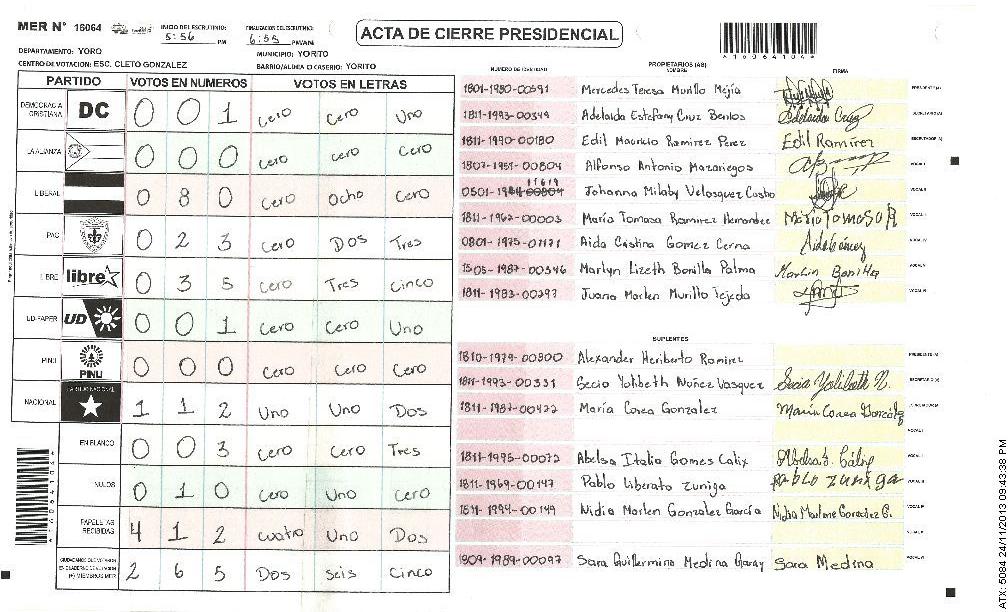 MER N° 16064
INICIO DEL ESCRUTINIO: 5:56 PM
FINALIZACION DEL ESCRUTINIO: 6:55 PM/AM
ACTA DE CIERRE PRESIDENCIAL
*16064104*
DEPARTAMENTO: YORO
MUNICIPIO: YORITO
CENTRO DE VOTACION: ESC. CLETO GONZALEZ
BARRIO/ALDEA O CASERIO: YORITO
PARTIDO VOTOS EN NUMEROS VOTOS EN LETRAS
DEMOCRACIA CRISTIANA DC 0 0 1 Cero Cero Uno
LA ALIANZA 0 0 0 Cero Cero Cero
LIBERAL 0 8 0 Cero Ocho Cero
PAC 0 2 3 Cero Dos Tres
LIBRE libre 0 3 5 Cero Tres Cinco
UD-FAPER UD 0 0 1 Cero Cero Uno
PINU PINU 0 0 0 Cero Cero Cero
NACIONAL PARTIDO NACIONAL 1 1 2 Uno Uno Dos
EN BLANCO 0 0 3 Cero Cero Tres
NULOS 0 1 0 Cero Uno Cero
PAPELETAS RECIBIDAS 4 1 2 cuatro Uno Dos
CIUDADANOS QUE VOTARON EN CUADERNO DE VOTACION (+) MIEMBROS MER 2 6 5 Dos seis Cinco
NUMERO DE IDENTIDAD PROPIETARIOS (AS) NOMBRE FIRMA
1801-1980-00591 Mercedes Teresa Murillo Mejia PRESIDENTE (A)
1811-1993-00349 Adelaida Estefany Cruz Benlos Adelaida Cruz SECRETARIO (A)
1811-1990-00180 Edil Mauricio Ramirez Perez Edil Ramirez ESCRUTADOR (A)
1807-1951-00804 Alfonso Antonio Mazariegos VOCAL I
0501- Johanna Milaby Velosquez Castro VOCAL II
1811-1962-00003 Maria Tomasa Ramirez Hernandez Maria Tomasa R VOCAL III
0801-1975-07171 Aida Cristina Gomez Cerna Aida Gómez VOCAL IV
1505-1987-00346 Marlyn Lizeth Bonilla Palma Marlin Bonilla VOCAL V
1811-1983-00297 Juana Marlen Murillo Tejeda VOCAL VI
SUPLENTES
1810-1979-00800 Alexander Heriberto Ramirez PRESIDENTE (A)
1811-1993-00331 Secia Yolibeth Nuñez Vasquez Secia Yolibeth N. SECRETARIO (A)
1811-1987-00422 Maria Corea Gonzalez Maria Corea González ESCRUTADOR (A)
VOCAL I
1811-1995-00072 Abelsa Italia Gomes Calix VOCAL II
1811-1969-00147 Pablo Liberato Zuniga Pablo Zuniga VOCAL III
1811-1994-00149 Nidia Marlen Gonzalez García Nidia Marlene Gonzalez G. VOCAL IV
VOCAL V
1809-1989-00097 Sara Guillermina Medina Garay Sara Medina VOCAL VI
ATX: 5084 24/11/2013 09:43:38 PM